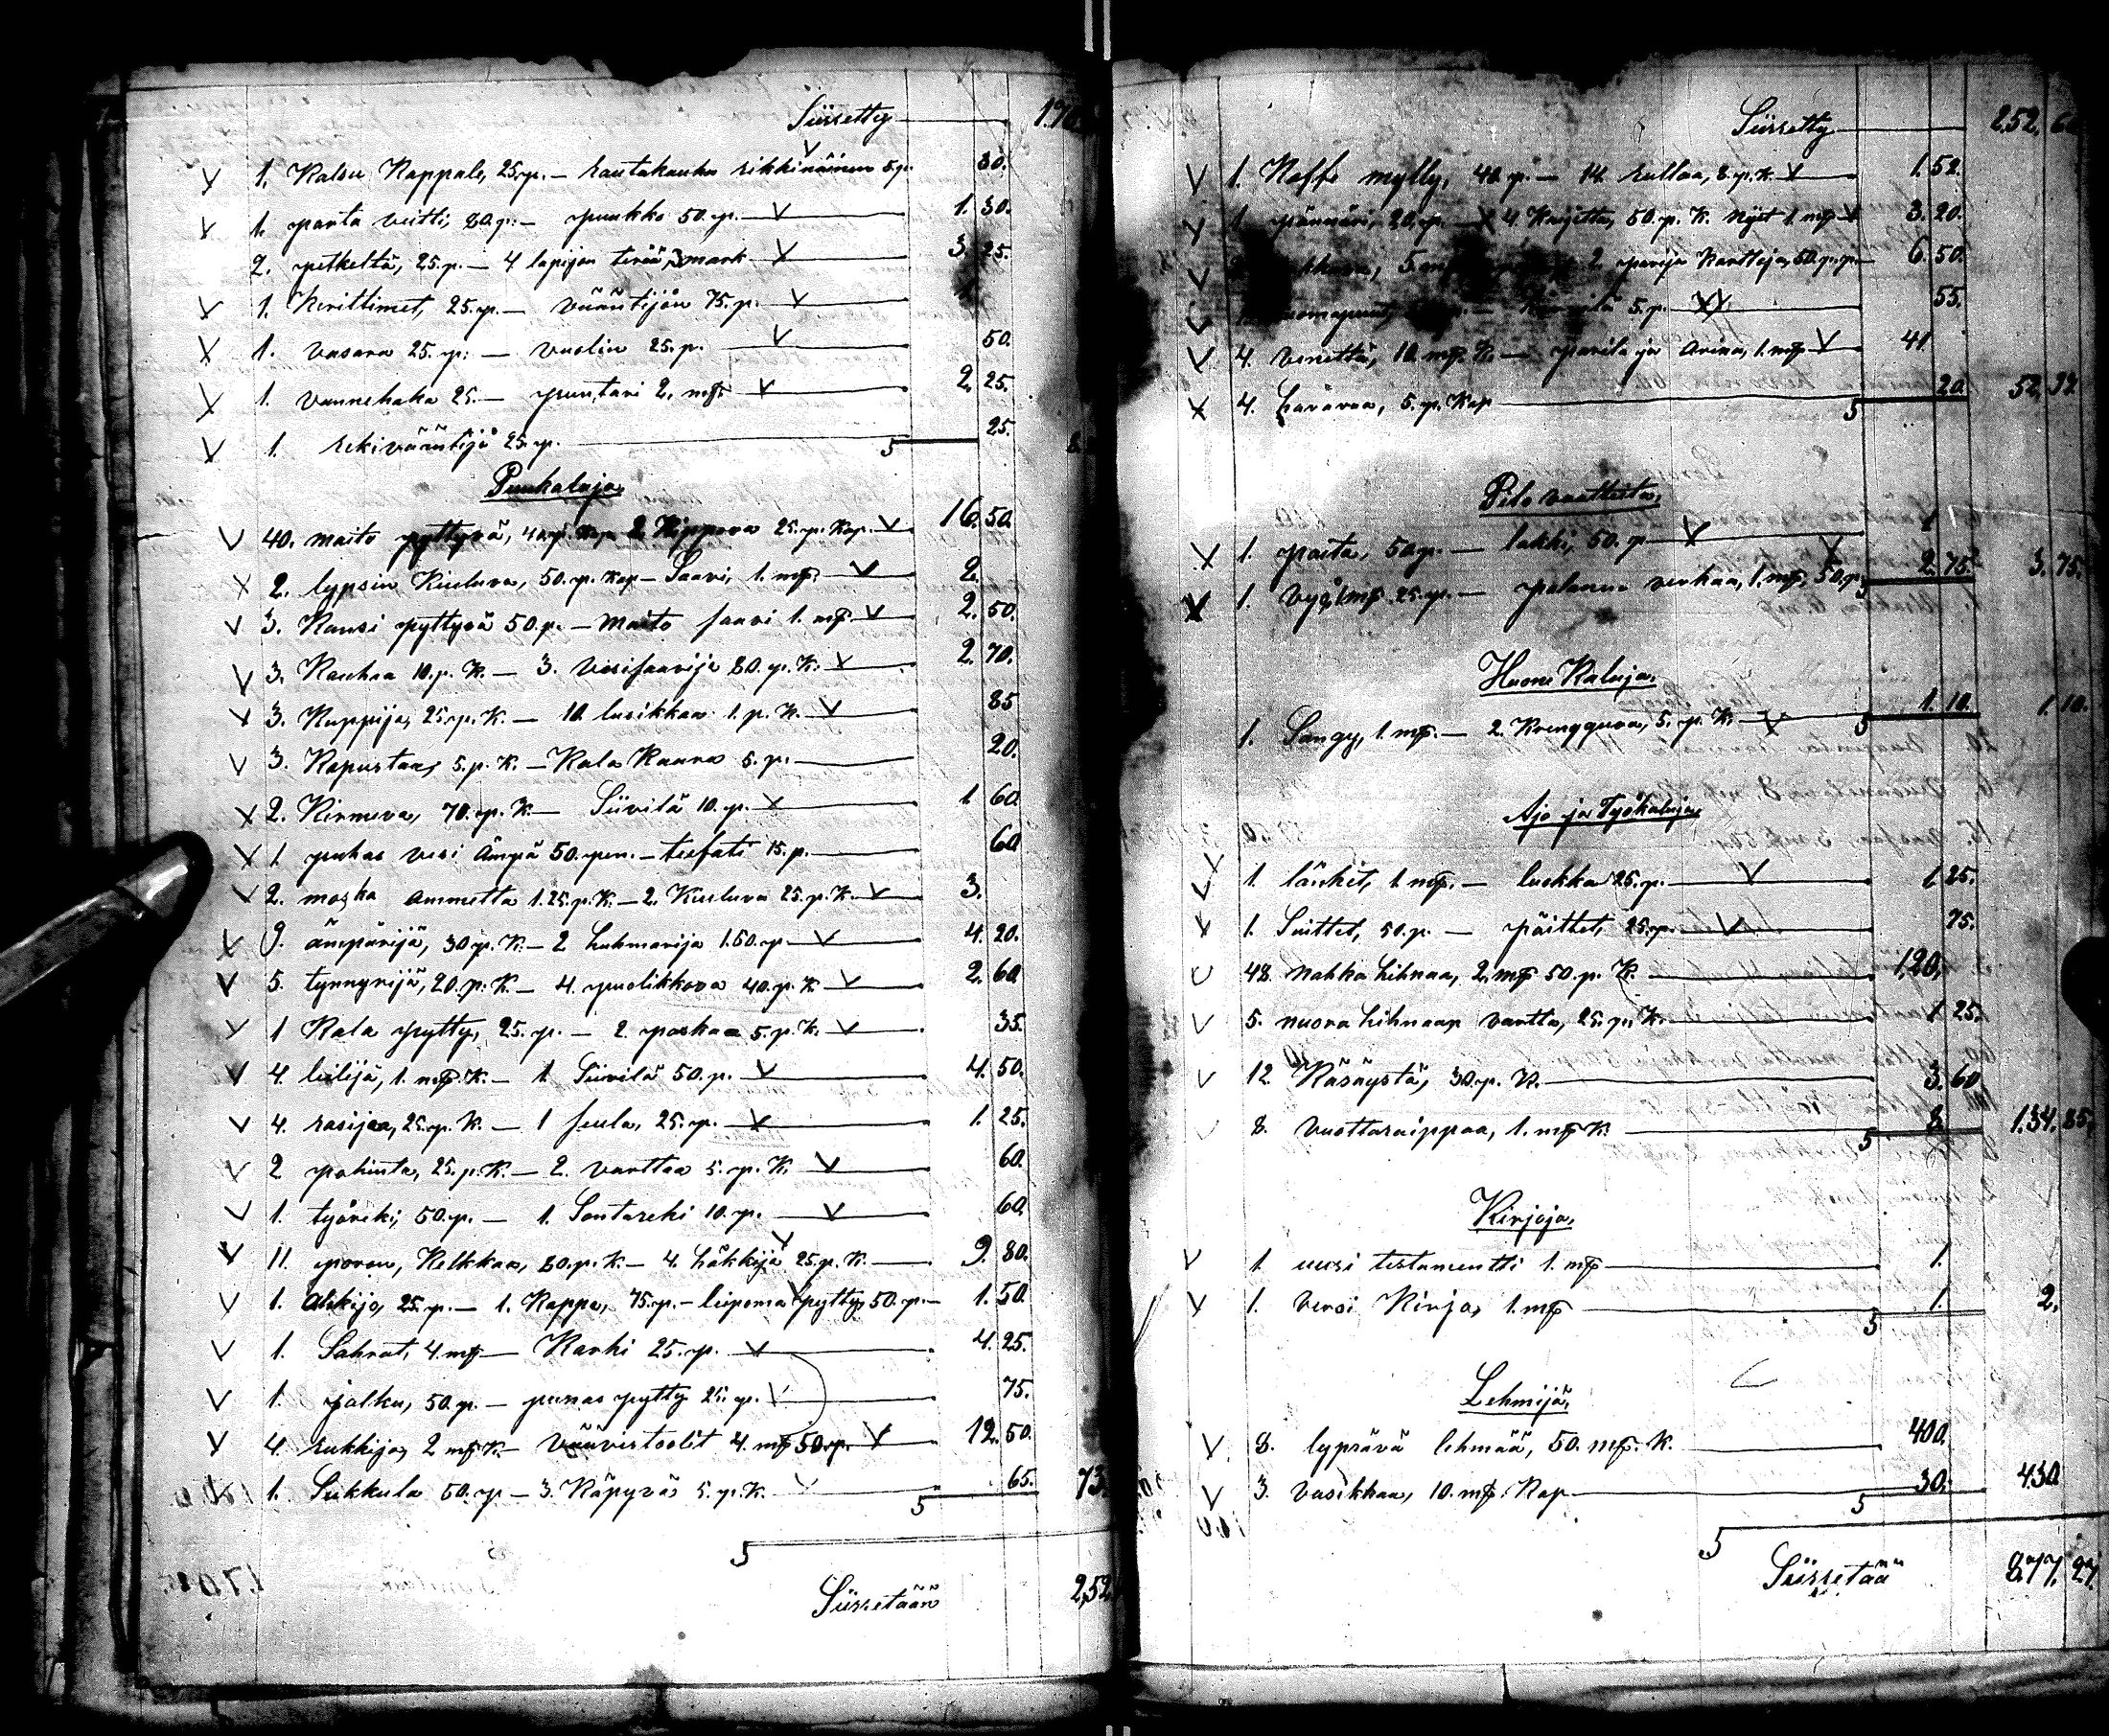 Siirretty
1. Kalsu Kappale, 25.p. – rautakanka rikkinäinen 5 p. 30.
1. parta veitti, 80.p. – puukko 50.p. 1. 30.
2. petkeltä, 25.p. – 4 lapijon terää, 3 mark 3. 25.
1. Kerittimet, 25.p. – vääntijän 75.p. 1.
1. vasara 25.p. – vuolin 25.p. 50.
1. vannehaka 25. – puntari 2. mf 2. 25.
1. rekivääntijä 25.p. 25.
Puukaluja.
40. maito pyttyvä, 40.p. Kap. 2 Kippova 25.p. Kap. 16. 50.
2. lypsin Kiuluva, 50.p. Kap – Saavi, 1. mf. 2.
3. Kansi pyttyvä 50.p. – maito saavi 1. mf. 2. 50.
3. Kauhaa 10.p. K. – 3. vesisaavija 80.p. K. 2. 70.
3. Kuppija, 25.p. K. – 10. lusikkaa 1.p. K. 85
3. Kapustaa, 5.p. K. – Kala Kaara 5.p. 20.
2. Kirnuva, 70.p. K. – Siivilä 10.p. 1 60.
1 puhas vesi Ämpä 50.pen. – teefati 15.p. 60
2. maska ammetta 1.25.p. K. – 2. Kiuluva 25.p. K. 3.
9. ämpärijä, 30.p. K. – 2 huhmarija 1.50.p. 4. 20.
5. tynnyrijä, 20.p. K. – 4. puolikkova 40.p. K 2. 60
1 Kala pytty, 25.p. – 2. paskaa 5.p. K. 35.
4. leilijä, 1. mf. K. – 1. Siivilä 50.p. 4. 50.
4. rasijaa, 25.p. K. – 1 seula, 25.p. 1. 25.
2 pohinta, 25.p. K. – 2. varttaa 5.p. K. 60.
1. työreki, 50.p. – 1. Sontareki 10.p. 60.
11. poron, Kelkkaa, 80.p. K. – 4. häkkijä 25.p. K. 9. 80.
1. 25.p. – 1. Kappa, 75.p. – leipoma pytty, 50.p. 1. 50.
1. Sahrat, 4. mf – Karhi 25.p. 4. 25.
1. jalku, 50.p. – punas pytty 25.p. 75.
4. rukkija, 2 mf K. – väävistoolit 4. mf 50.p. 12. 50.
1. Sukkula 50.p – 3. Käpyvä 5.p. K. 65. 73.
Siirretään 252
Siirretty 252. 60
1. Kaffe mylly, 40.p. – 14. rullaa, 8.p. K. 1. 52.
1. pännäri, 20.p. – 4. Knijttä, 50.p. K. nyit 1. mf 3. 20.
2. parija Karttoja, 50.p.p. 6. 50.
5.p. 55.
4. venettä, 10. mf. K. – parila ja Arina, 1. mf 41
4. haravaa, 5.p. Kap 20. 52. 32
Pito vaatteita.
1. paita, 50.p. – lakki, 50.p 1
1. vyä, 1mf. 25.p. – palanen verkaa, 1. mf, 50.p. 2. 75. 3. 75.
Huone Kaluja.
1. Sängy, 1. mf. – 2. Krengguva, 5.p. K. 1. 10. 1. 10.
Ajo ja Työkaluja.
1. länket, 1. mf. – luokka 25.p. 1 25.
1. Suittet, 50.p. – päittet, 25.p. 75.
48. nahka hihnaa, 2. mf 50.p. K. 120,
5. nuora hihnaap vartta, 25.p. K. 1 25.
12 Käsnystä, 30.p. K. 3. 60
8. vuottaraippaa, 1. mf K. 8 134. 85,
Kirjoja.
1. uusi testamentti 1. mf 1.
1. versi Kirja, 1. mf 1. 2.
Lehmijä.
8. lypsävä lehmää, 50. mf. K. 400.
3. vasikkaa, 10. mf. Kap 30. 430
Siirretää 877. 27.